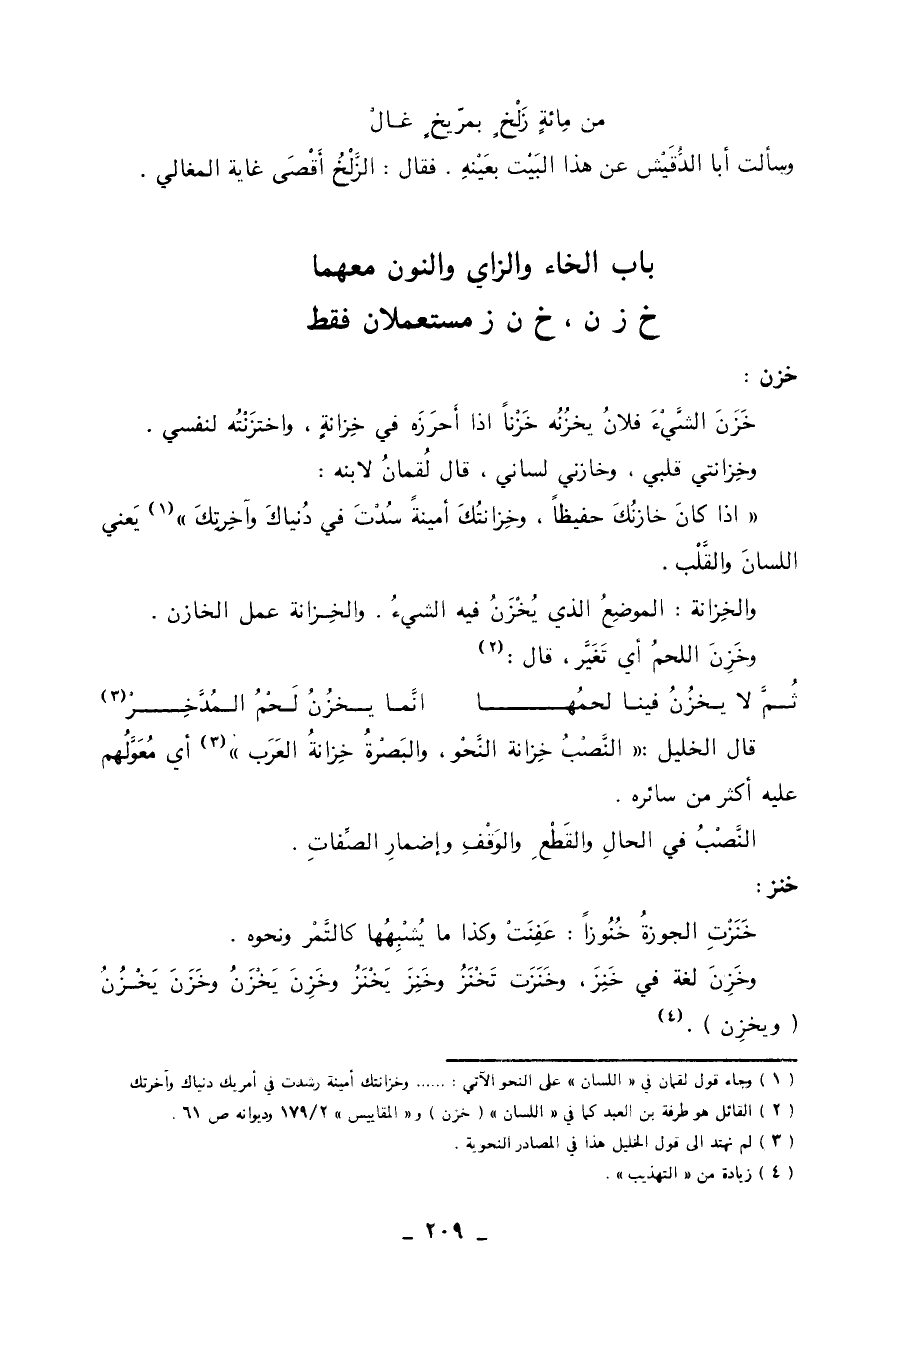 من مِائةٍ زَلْخٍ بمرّيخٍ غــالْ
وسألت أبا الدُّقَيْش عن هذا البَيْت بعَيْنهِ . فقال : الزَّلْخُ أقْصَى غاية المغالي .
باب الخاء والزاي والنون معهما
خ ز ن ، خ ن ز مستعملان فقط
خزن :
خَزَنَ الشَّيْءَ فلانُ يخزُنُه خَزْناً اذا أحرَزَه في خِزانةٍ ، واختزَنْتُه لنفسي .
وخِزانتي قلبي ، وخازني لساني ، قال لُقمانُ لابنه :
« اذا كانَ خازنُكَ حفيظاً ، وخِزانتُكَ أمينةً سُدْتَ في دُنياكَ وآخِرتِكَ »(١) يَعني
اللسانَ والقَّلْب .
والخِزانة : الموضعُ الذي يُخْزَنُ فيه الشيءُ . والخِزانة عمل الخازن .
وخَزِنَ اللحمُ أي تَغَيَّر ، قال :(٢)
ثُــمَّ لا يـخزُنُ فينـا لحمُهــــــا انَّمـا يــخزُنُ لَـحْمُ الـمُدَّخِــــرْ(٣)
قال الخليل :« النَّصْبُ خِزانة النَّحْو ، والبَصْرةُ خِزانةُ العَرَب »(٣) أي مُعَوَّلُهم
عليه أكثر من سائره .
النَّصْبُ في الحالِ والقَطْعِ والوَقْفِ وإضمارِ الصِّفاتِ .
خنز :
خَنَزْتِ الجوزةُ خُنُوزاً : عَفِنَتْ وكذا ما يُشْبِهُها كالتَّمْر ونحوه .
وخَزِنَ لغة في خَنِزَ ، وخَنَزَت تَخْنَزُ وخَنِزَ يَخْنَزُ وخَزِنَ يَخْزَنُ وخَزَنَ يَخْـزُنُ
( ويخزِن ) .(٤)
( ١ ) وجاء قول لقمان في « اللسان » على النحو الآتي : ...... وخزانتك أمينة رشدت في أمريك دنياك وآخرتك
( ٢ ) القائل هو طرفة بن العبد كما في « اللسان » ( خزن ) و« المقاييس » ١٧٩/٢ وديوانه ص ٦١ .
( ٣ ) لم نهتد الى قول الخليل هذا في المصادر النحوية .
( ٤ ) زيادة من « التهذيب » .
ـ ٢٠٩ ـ